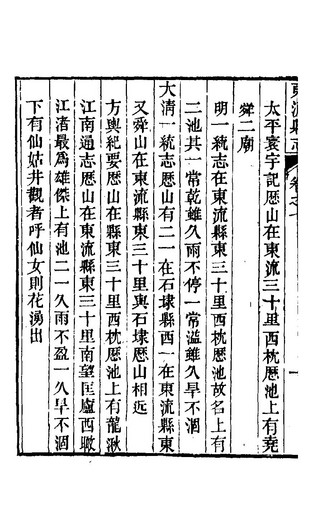 東流縣志
卷之
太平寰宇記歷山在東流三十里西枕歷池上有堯
舜二廟
明一統志在東流縣東三十里西枕歷池故名上有
二池其一常乾雖久雨不停一常溢雖久旱不涸
大清一統志歷山有二一在石埭縣西一在東流縣東
又舜山在東流縣東三十里與石埭歷山相近
方輿紀要歷山在東流縣東三十里西枕歷池上有龍湫
江南通志歷山在東流縣東三十里南望匡廬西瞰
江渚最為雄傑上有池二一久雨不盈一久旱不涸
下有仙姑井觀者呼仙女則花湧出